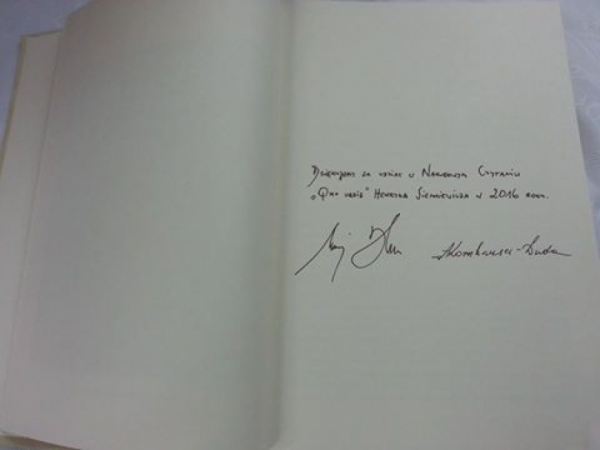 Dziękujemy za udział w Narodowym Czytaniu
„Quo vadis" Henryka Sienkiewicza w 2016 roku.
AKornhauser-Duda